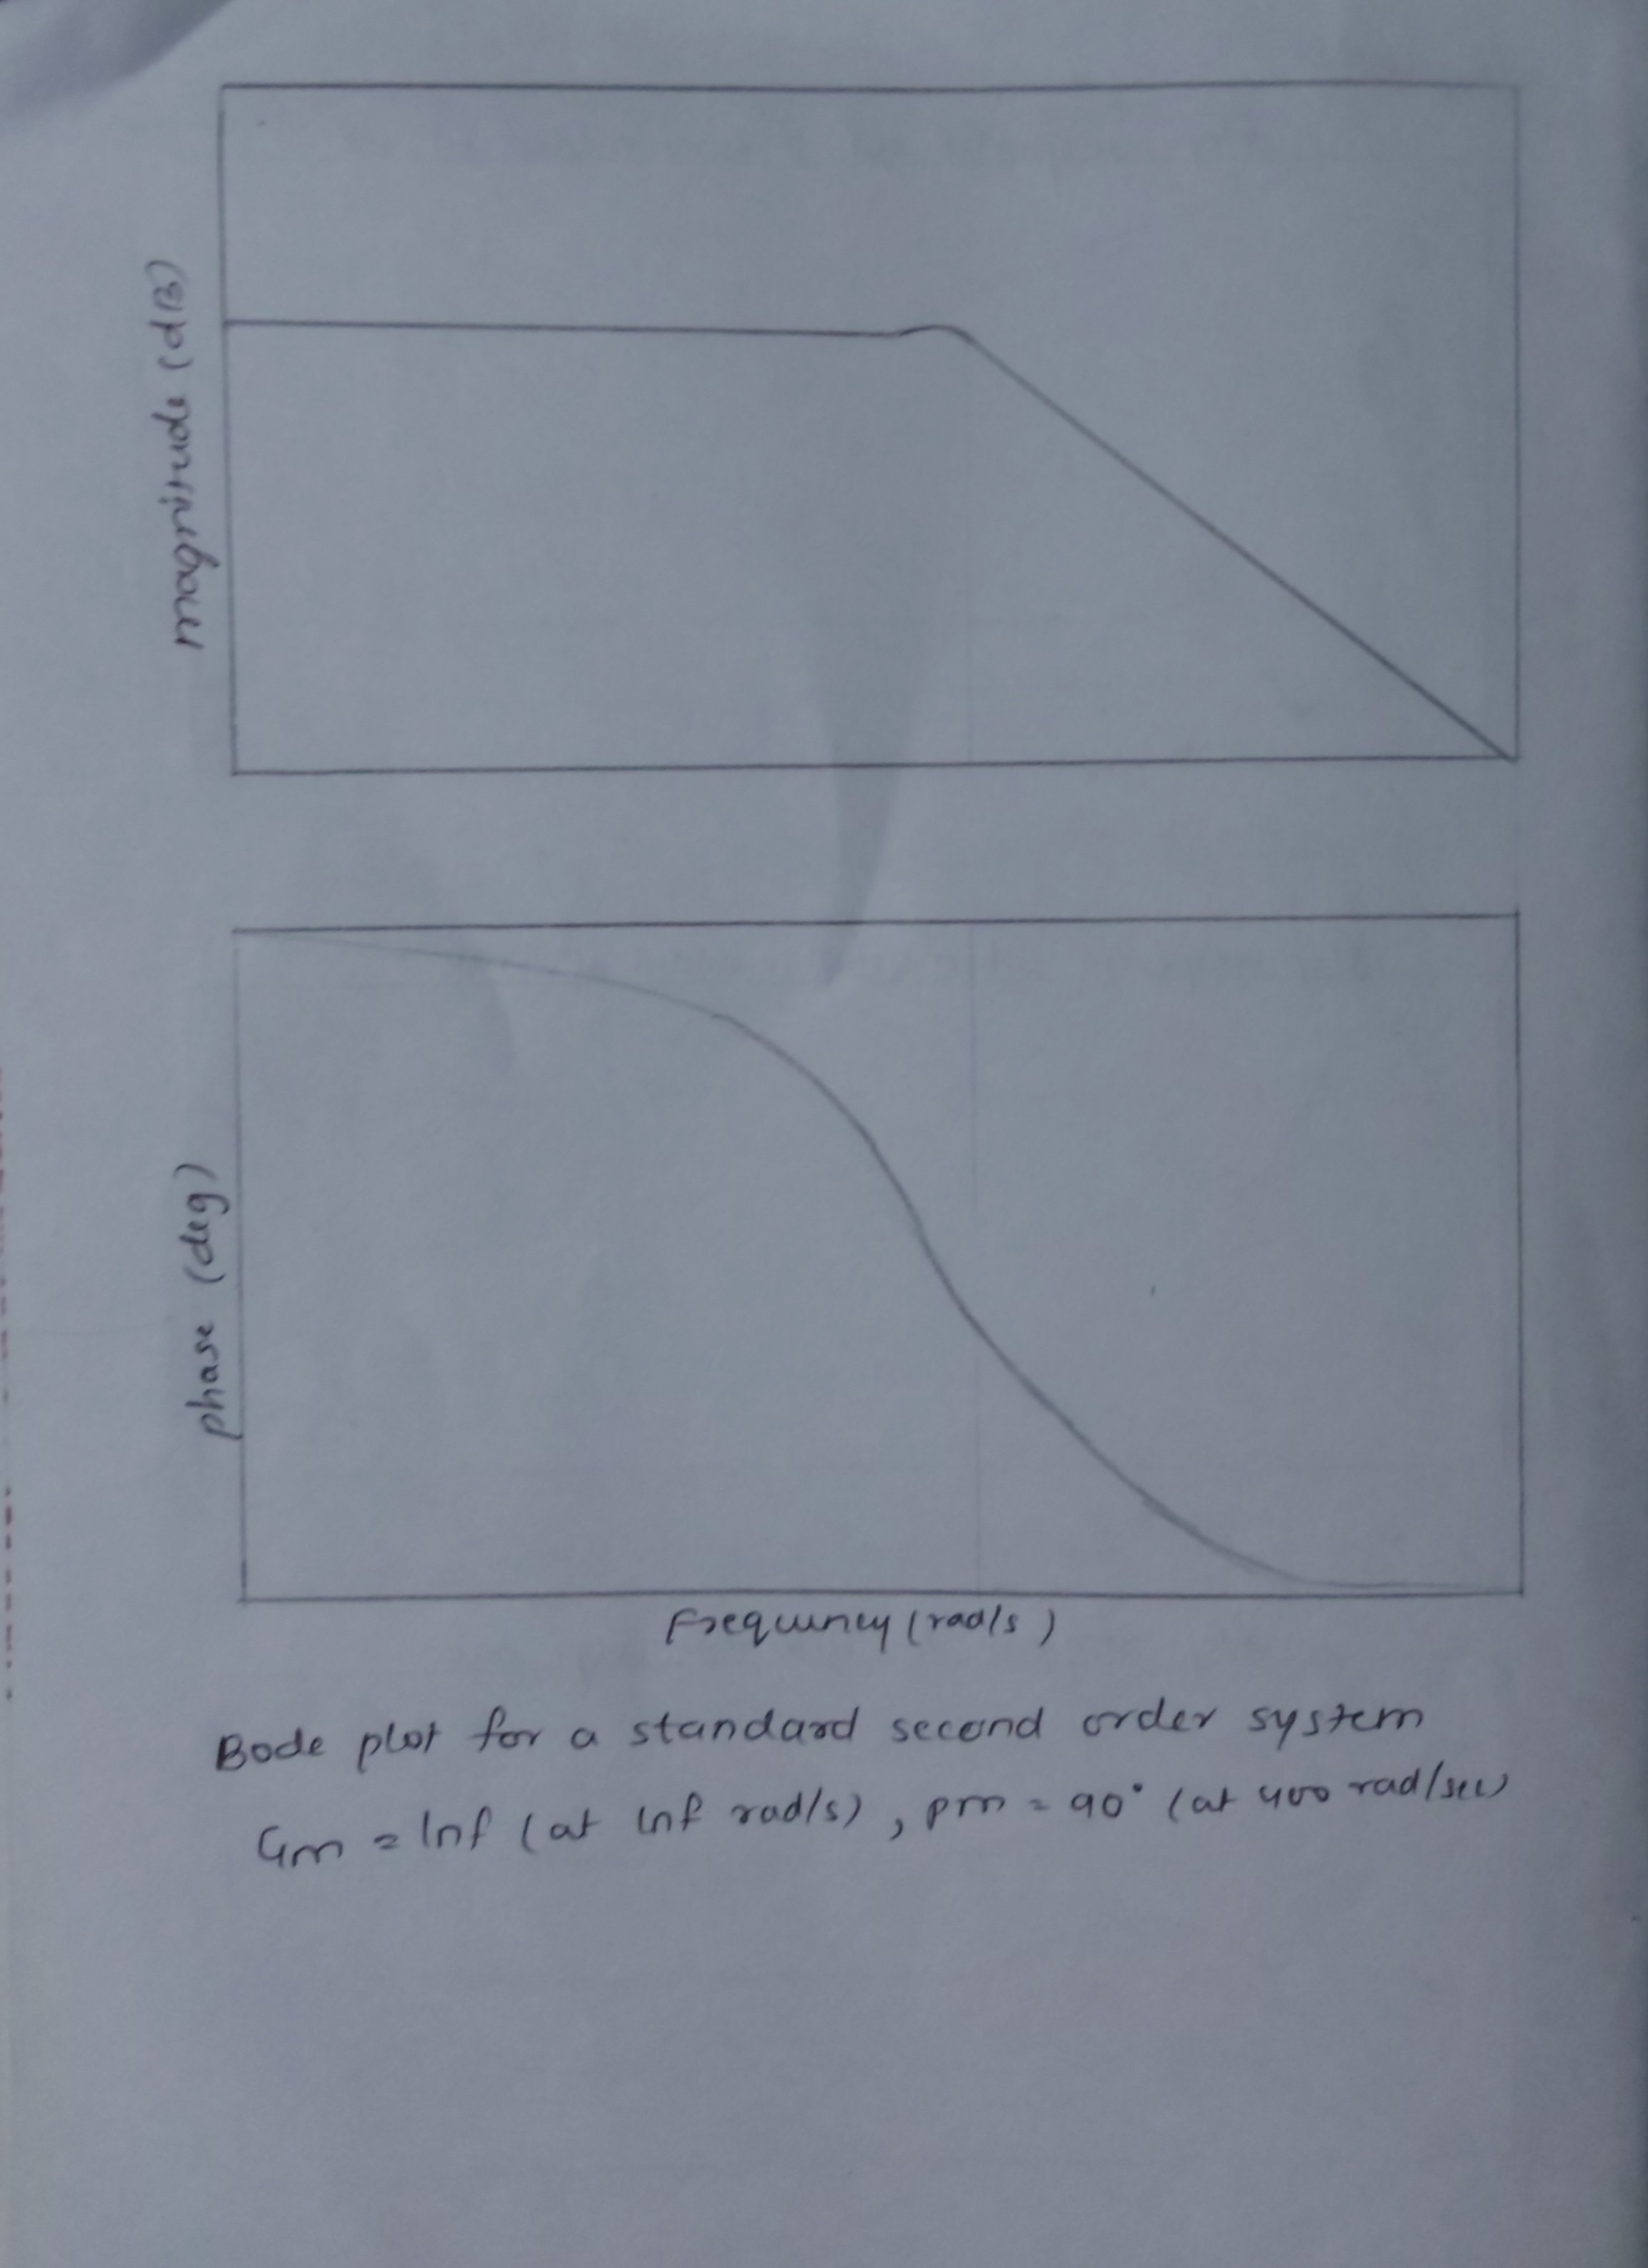 magnitude (dB)
phase (deg)
Frequency (rad/s)
Bode plot for a standard second order system
Gm = Inf (at Inf rad/s), pm = 90° (at 400 rad/sec)